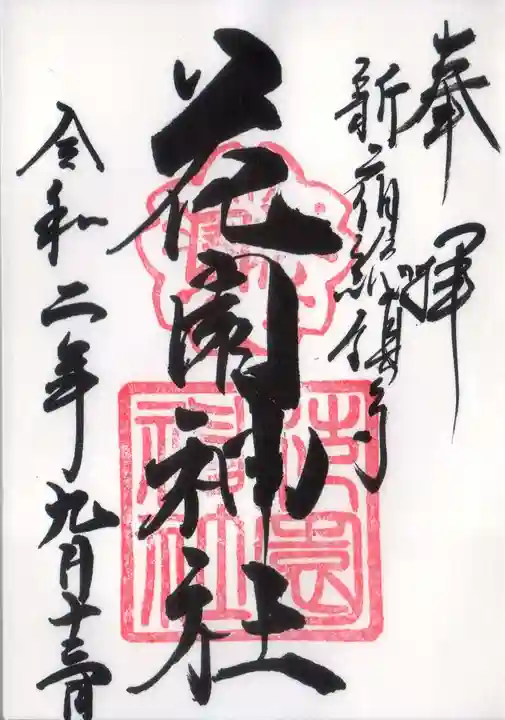 奉拝
新宿総鎮守
花園神社
令和二年九月十三日
花園
神社